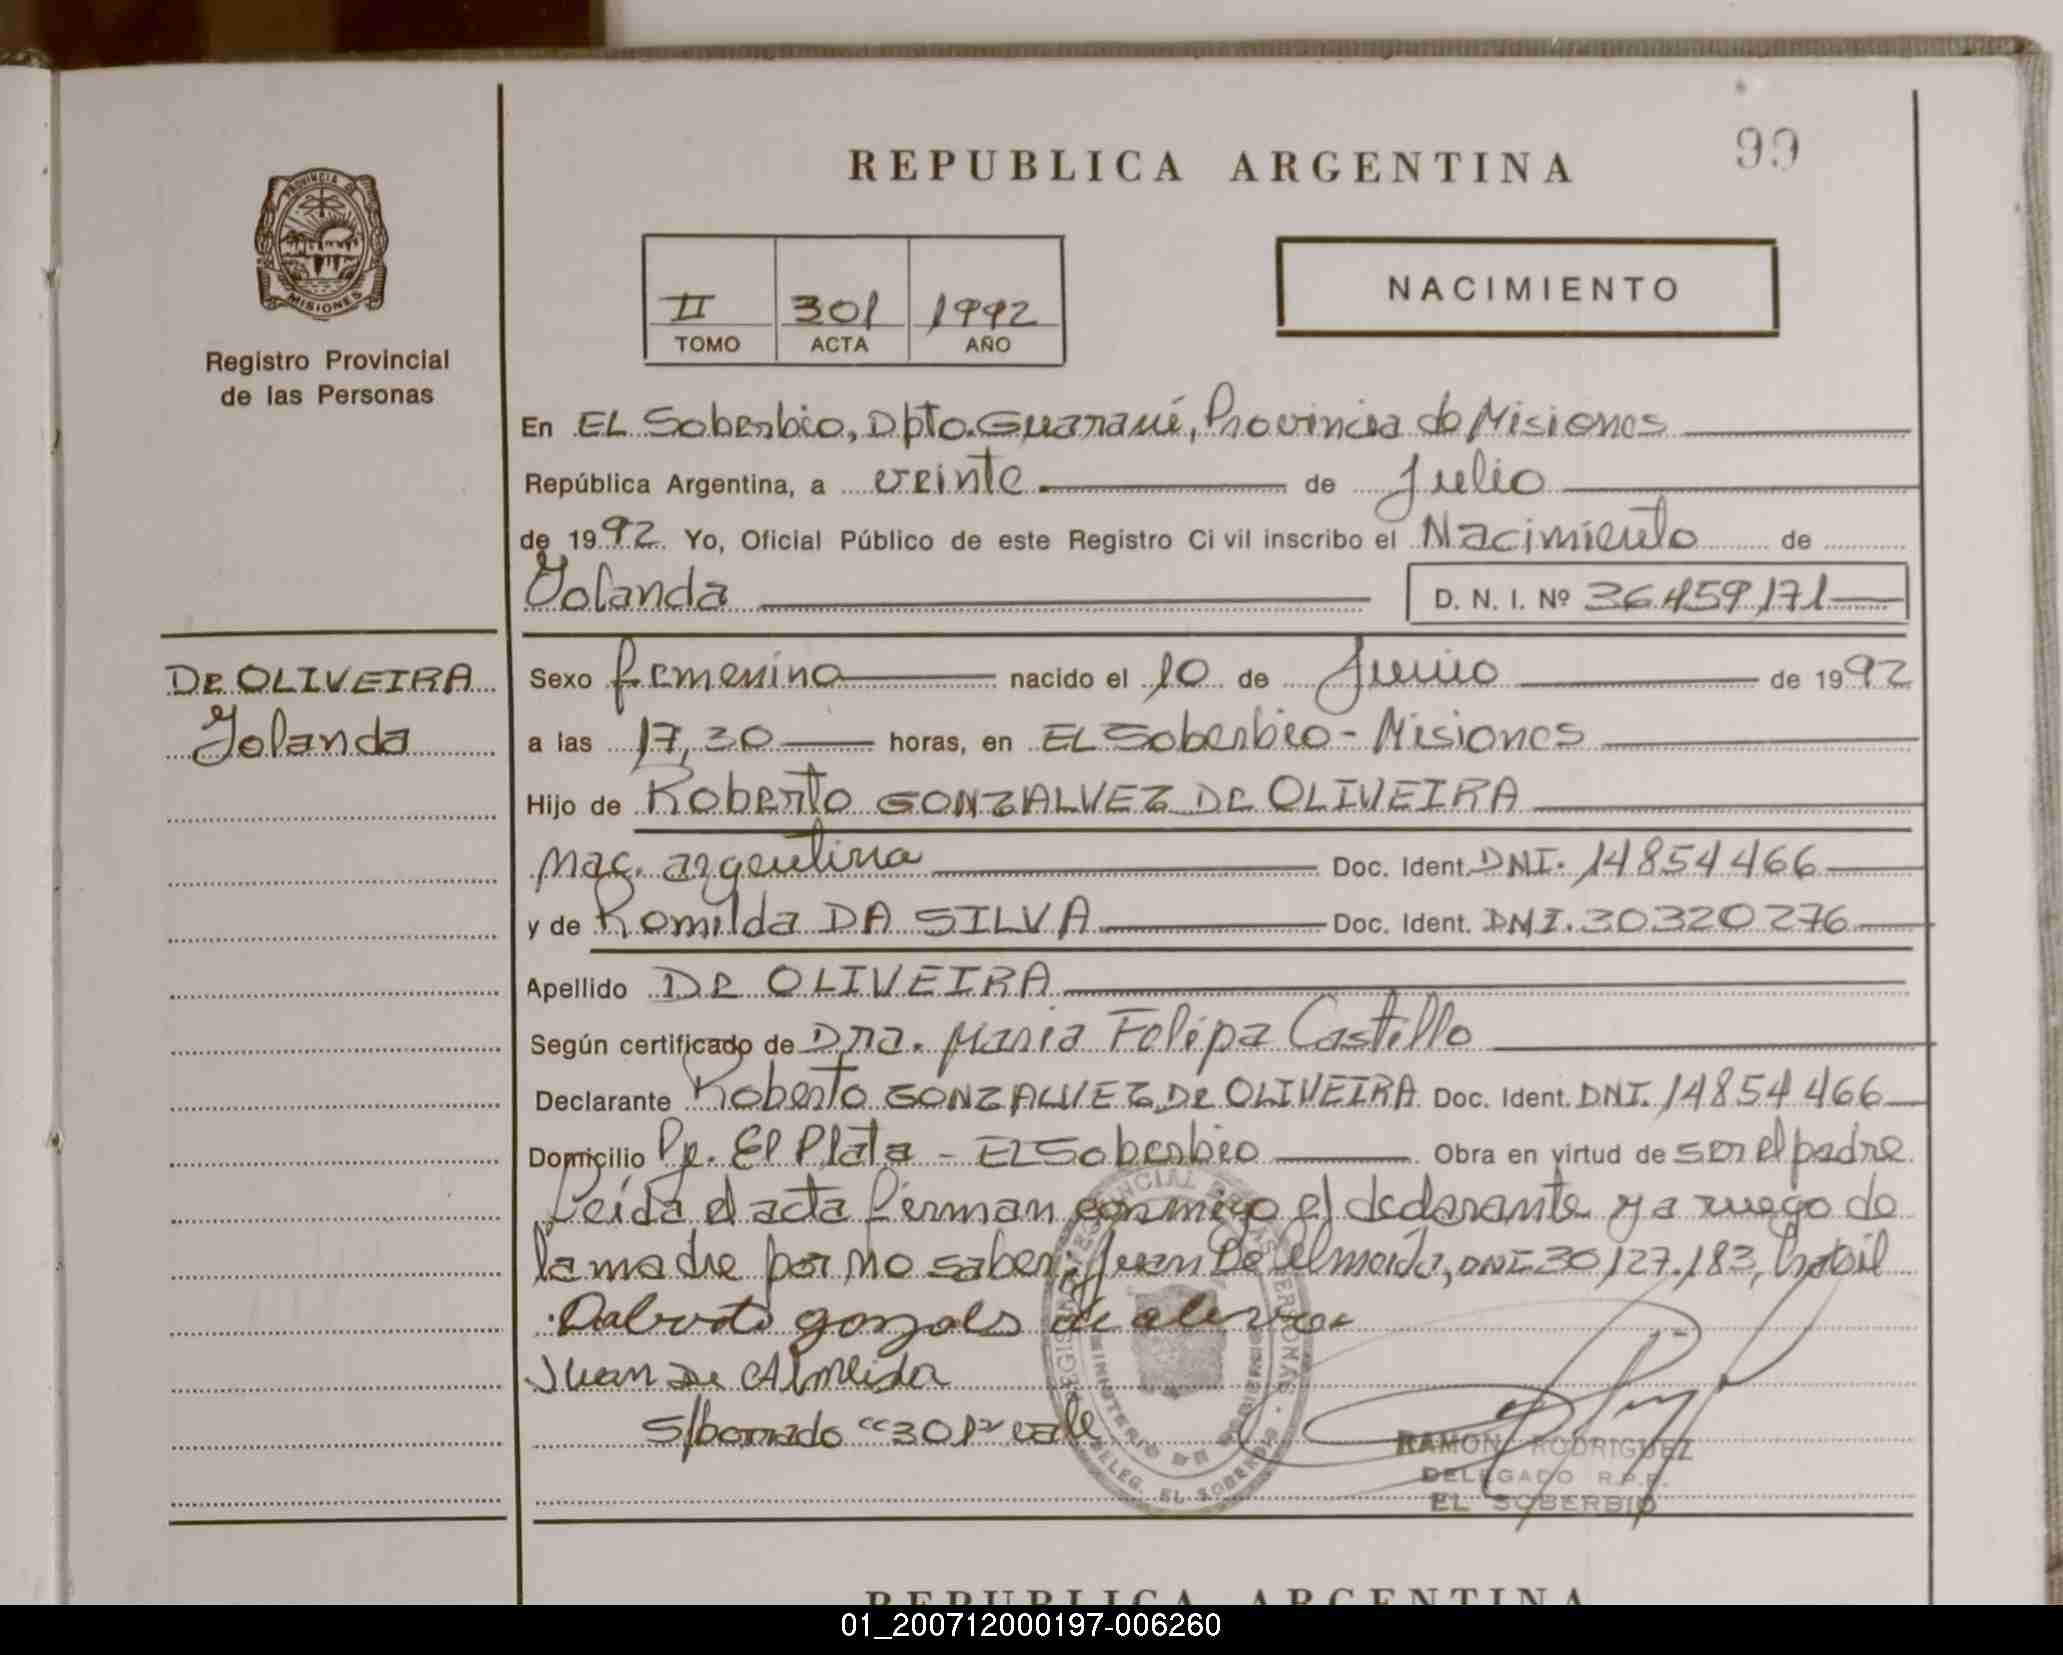 99
REPUBLICA ARGENTINA
PROVINCIA DE
MISIONES
Registro Provincial
de las Personas
II 301 1992
TOMO ACTA AÑO
NACIMIENTO
En EL Soberbio, Dpto. Guaraní, Provincia de Misiones
República Argentina, a veinte de Julio
de 1992 Yo, Oficial Público de este Registro Civil inscribo el Nacimiento de
Yolanda D. N. I. Nº 36.459.171
DE OLIVEIRA
Yolanda
Sexo femenino nacido el 10 de Junio de 1992
a las 17,30 horas, en EL Soberbio - Misiones
Hijo de Roberto GONZALVEZ DE OLIVEIRA
Nac. argentina Doc. Ident. DNI. 14854466
y de Romilda DA SILVA Doc. Ident. DNI. 30320276
Apellido DE OLIVEIRA
Según certificado de Dra. Maria Felipa Castillo
Declarante Roberto GONZALVEZ DE OLIVEIRA Doc. Ident. DNI. 14854466
Domicilio Pje. El Plata - EL Soberbio Obra en virtud de ser el padre
Leída el acta firman conmigo el declarante y a ruego de
la madre por no saber, Juan De Almeida, DNI 30.127.183, habil
Juan De Almeida
S/borrado "301" vale
RAMON RODRIGUEZ
DELEGADO R.P.P.
EL SOBERBIO
DELEG. EL SOBERBIO
REPUBLICA ARGENTINA
01_200712000197-006260